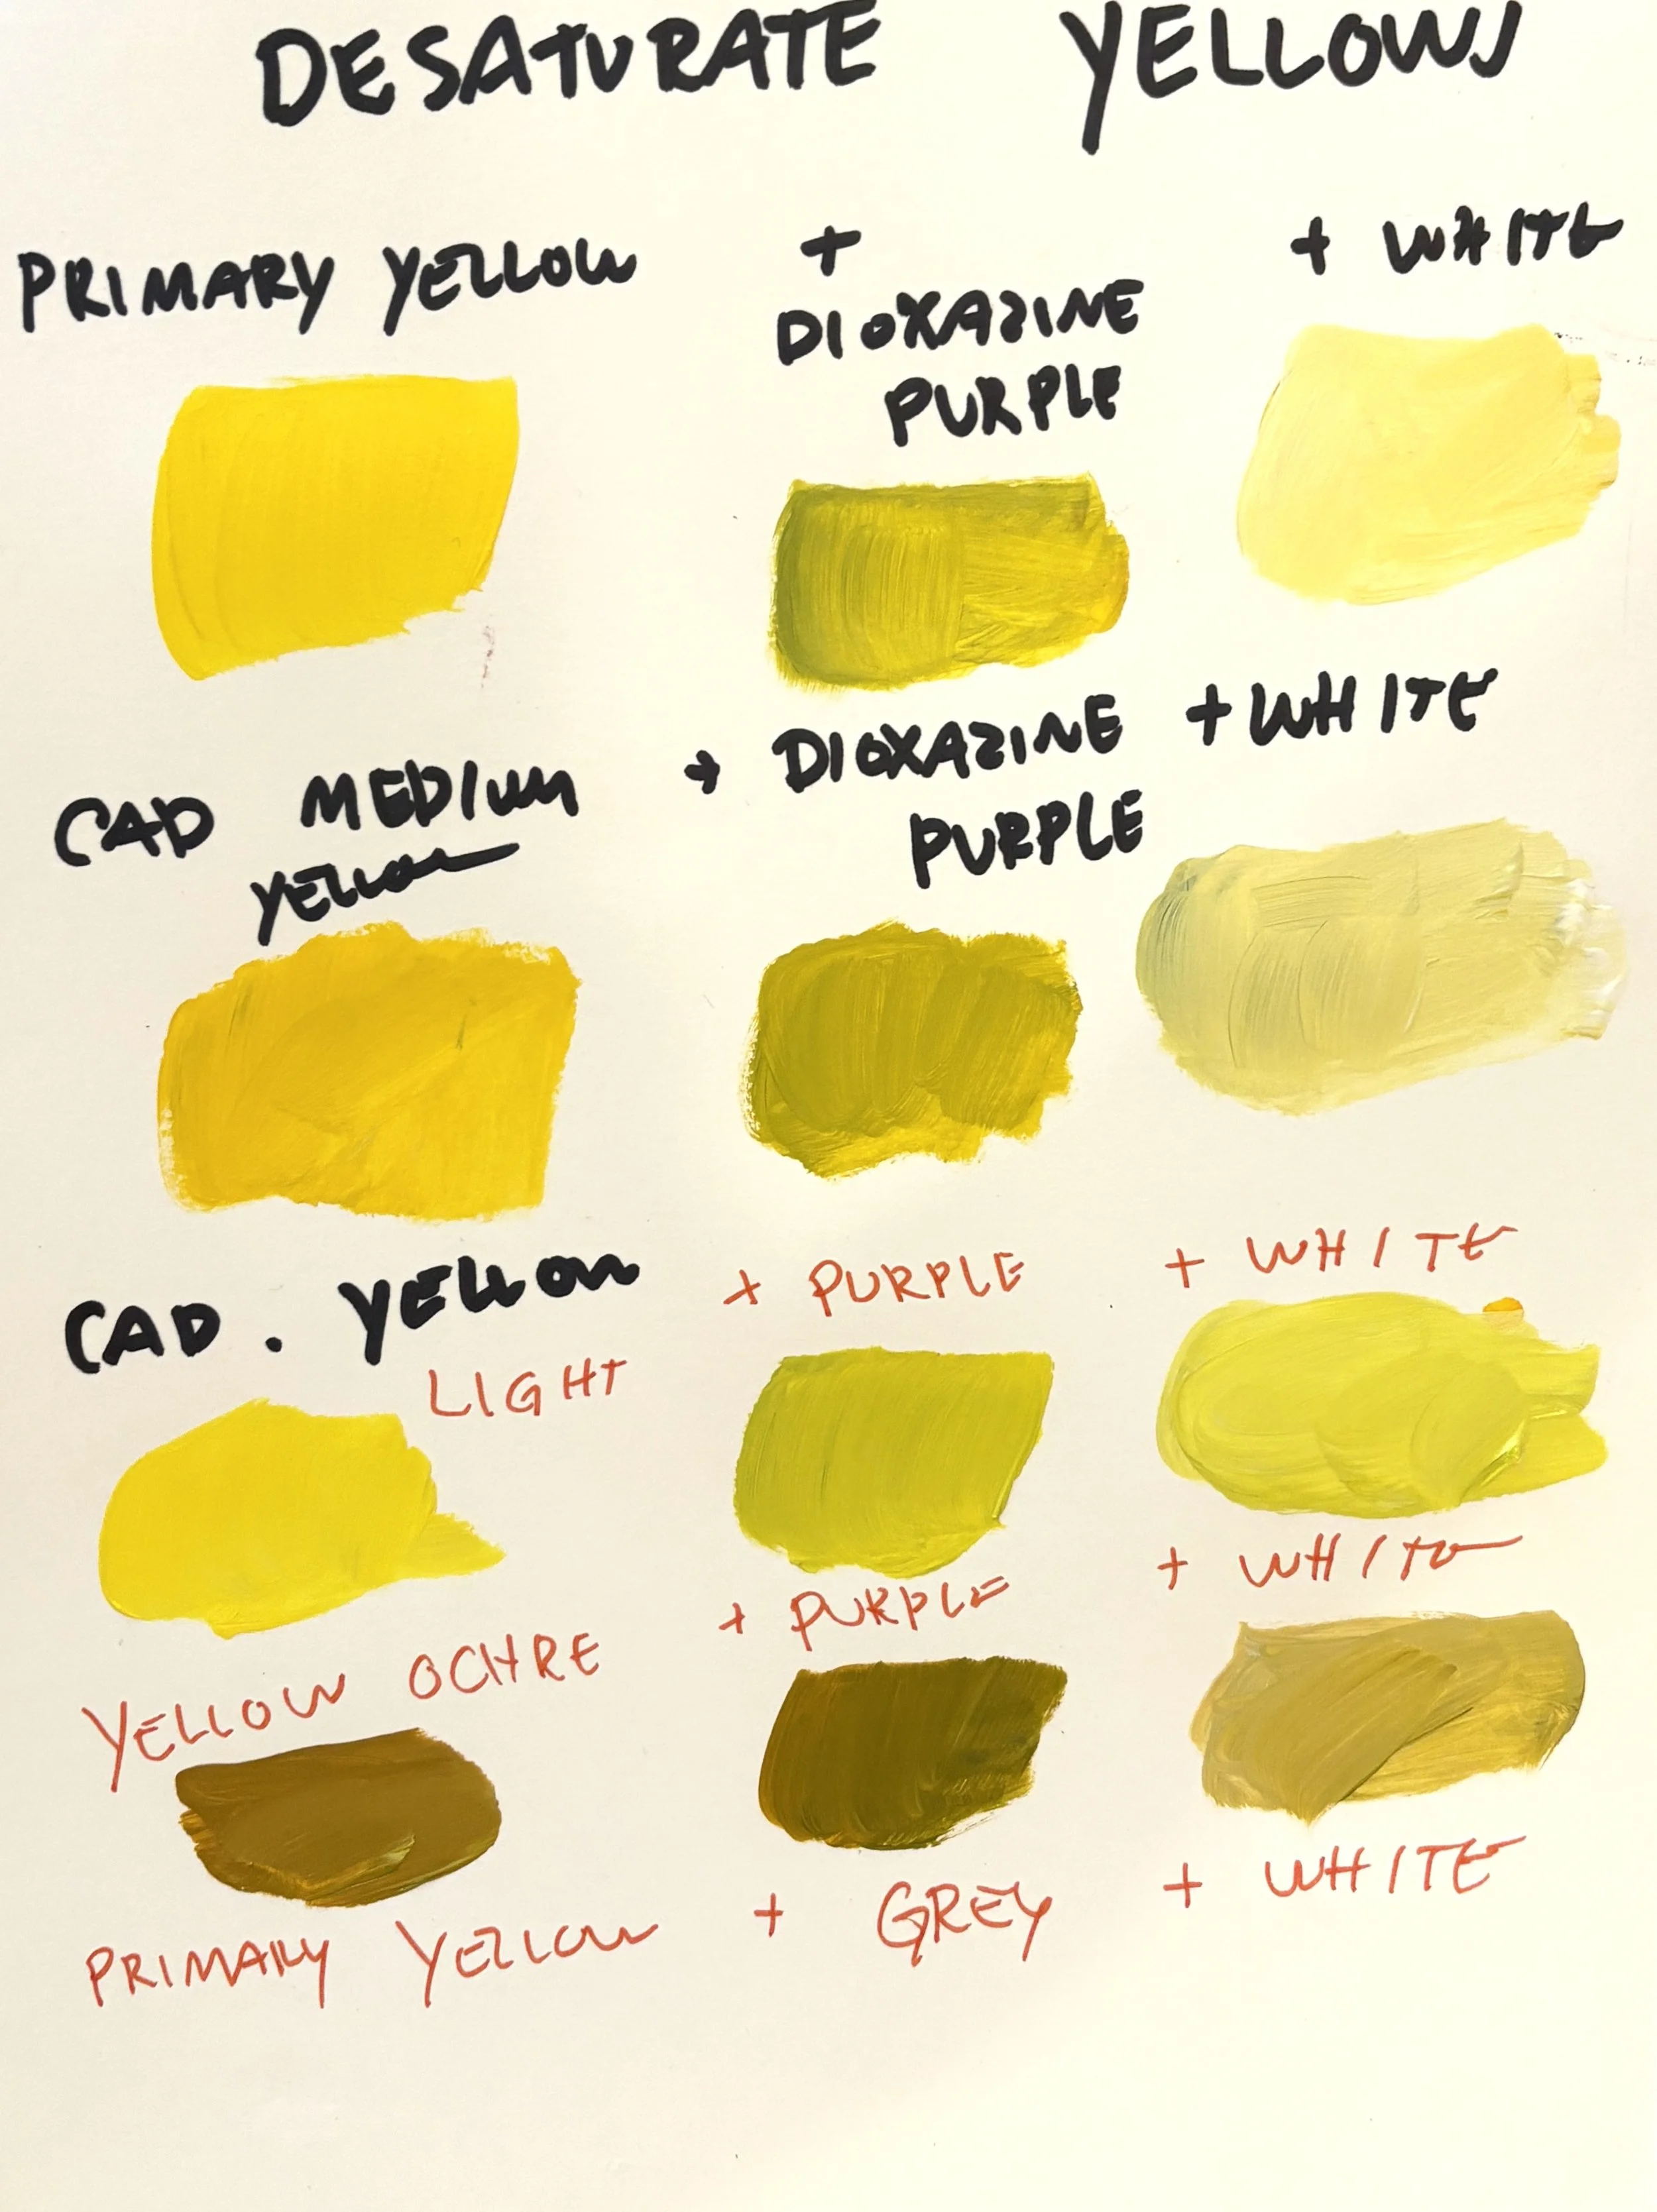 DESATURATE YELLOWS
PRIMARY YELLOW + + WHITE
DIOXAZINE
PURPLE
CAD MEDIUM + DIOXAZINE + WHITE
YELLOW PURPLE
CAD. YELLOW + PURPLE + WHITE
LIGHT
YELLOW OCHRE + PURPLE + WHITE
PRIMARY YELLOW + GREY + WHITE